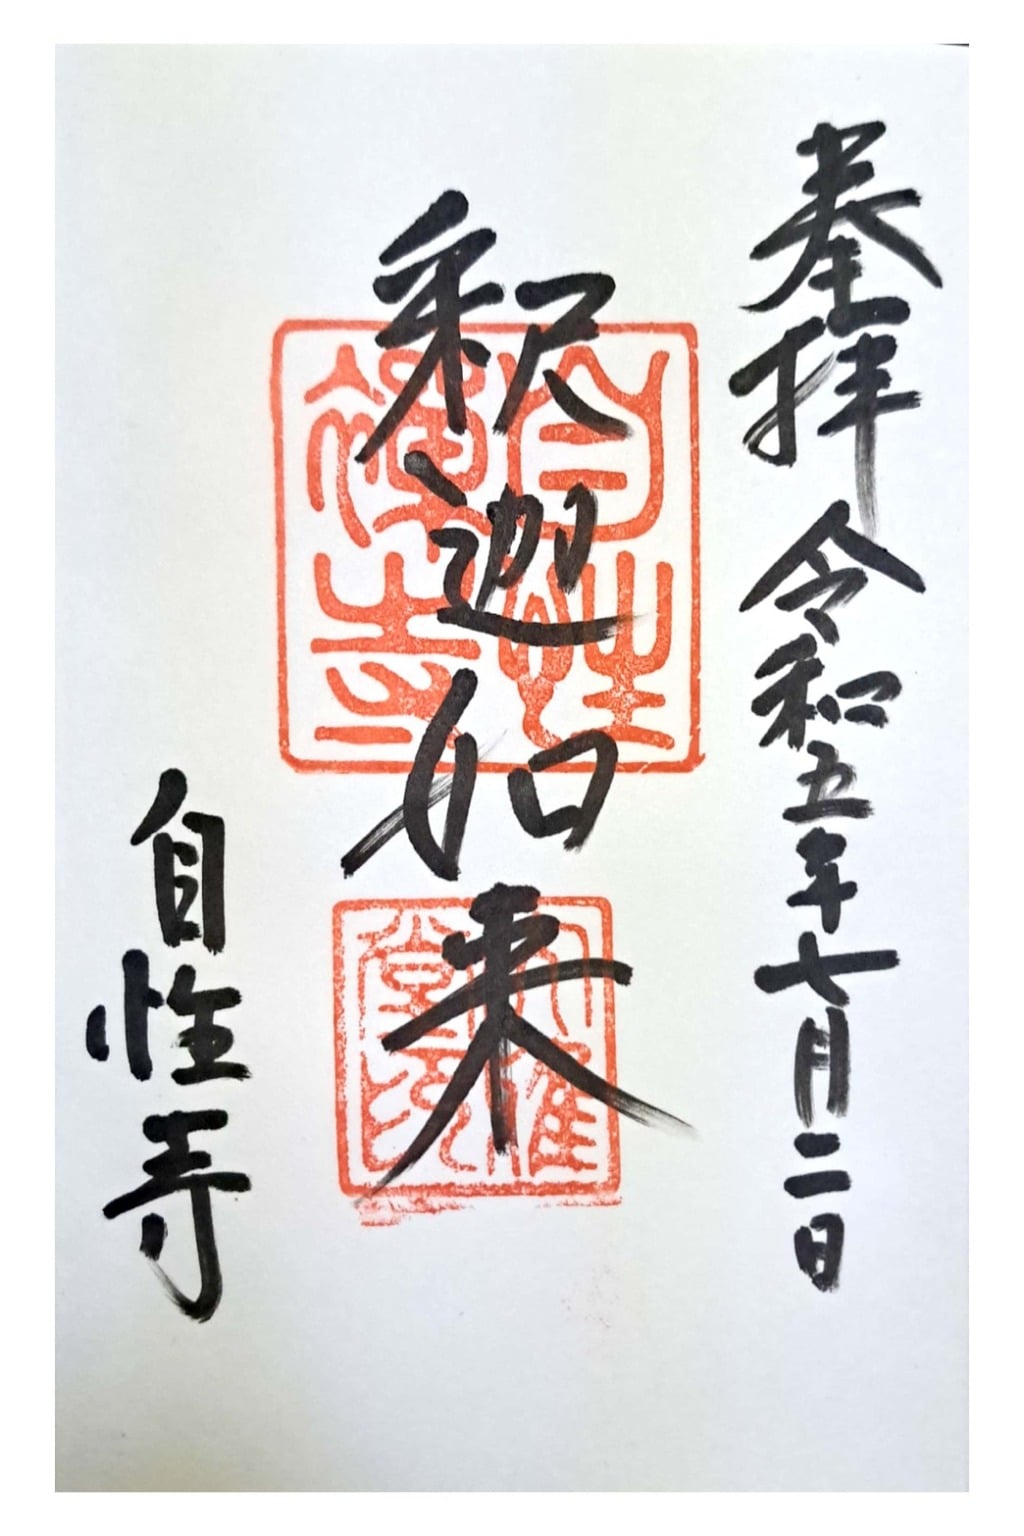 奉拝 令和五年七月二日
釈迦如来
自性禪寺
自性寺